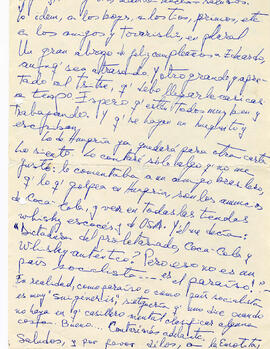 Yo idem, a los boys, a los tíos, primos, etc
a los amigos y            en plural
Un gran abrazo de feliz cumpleaños a Eduardo,
aunq' sea atrasado, y otro grande y apre-
tado al       , q' debe llegarle casi casi
a tiempo. Espero q' estén todos muy bien y
trabajando. Y q' se hagan un huequito y
escriban.
Lo de Hungría ya quedará para otra carta.
Lo siento. Lo contaré sólo algo q' no me
gustó: le comentaba a un amigo brasilero,
q' lo q' golpea en Hungría son los anuncios
de Coca-Cola, y ver en todas las tiendas
whisky escocés, y de USA. Y él me decía:
"Dictadura del proletariado, Coca-Cola y
Whisky auténtico? Pero eso no es un
país socialista --- es el paraíso!"
En realidad, como paraíso o como país socialista
es muy "sui generis",            y uno que cuando
no haya en q' casillero mental clasificar alguna
cosa. Bueno... Continúo adelante.
Saludos, y por favor dilos, a